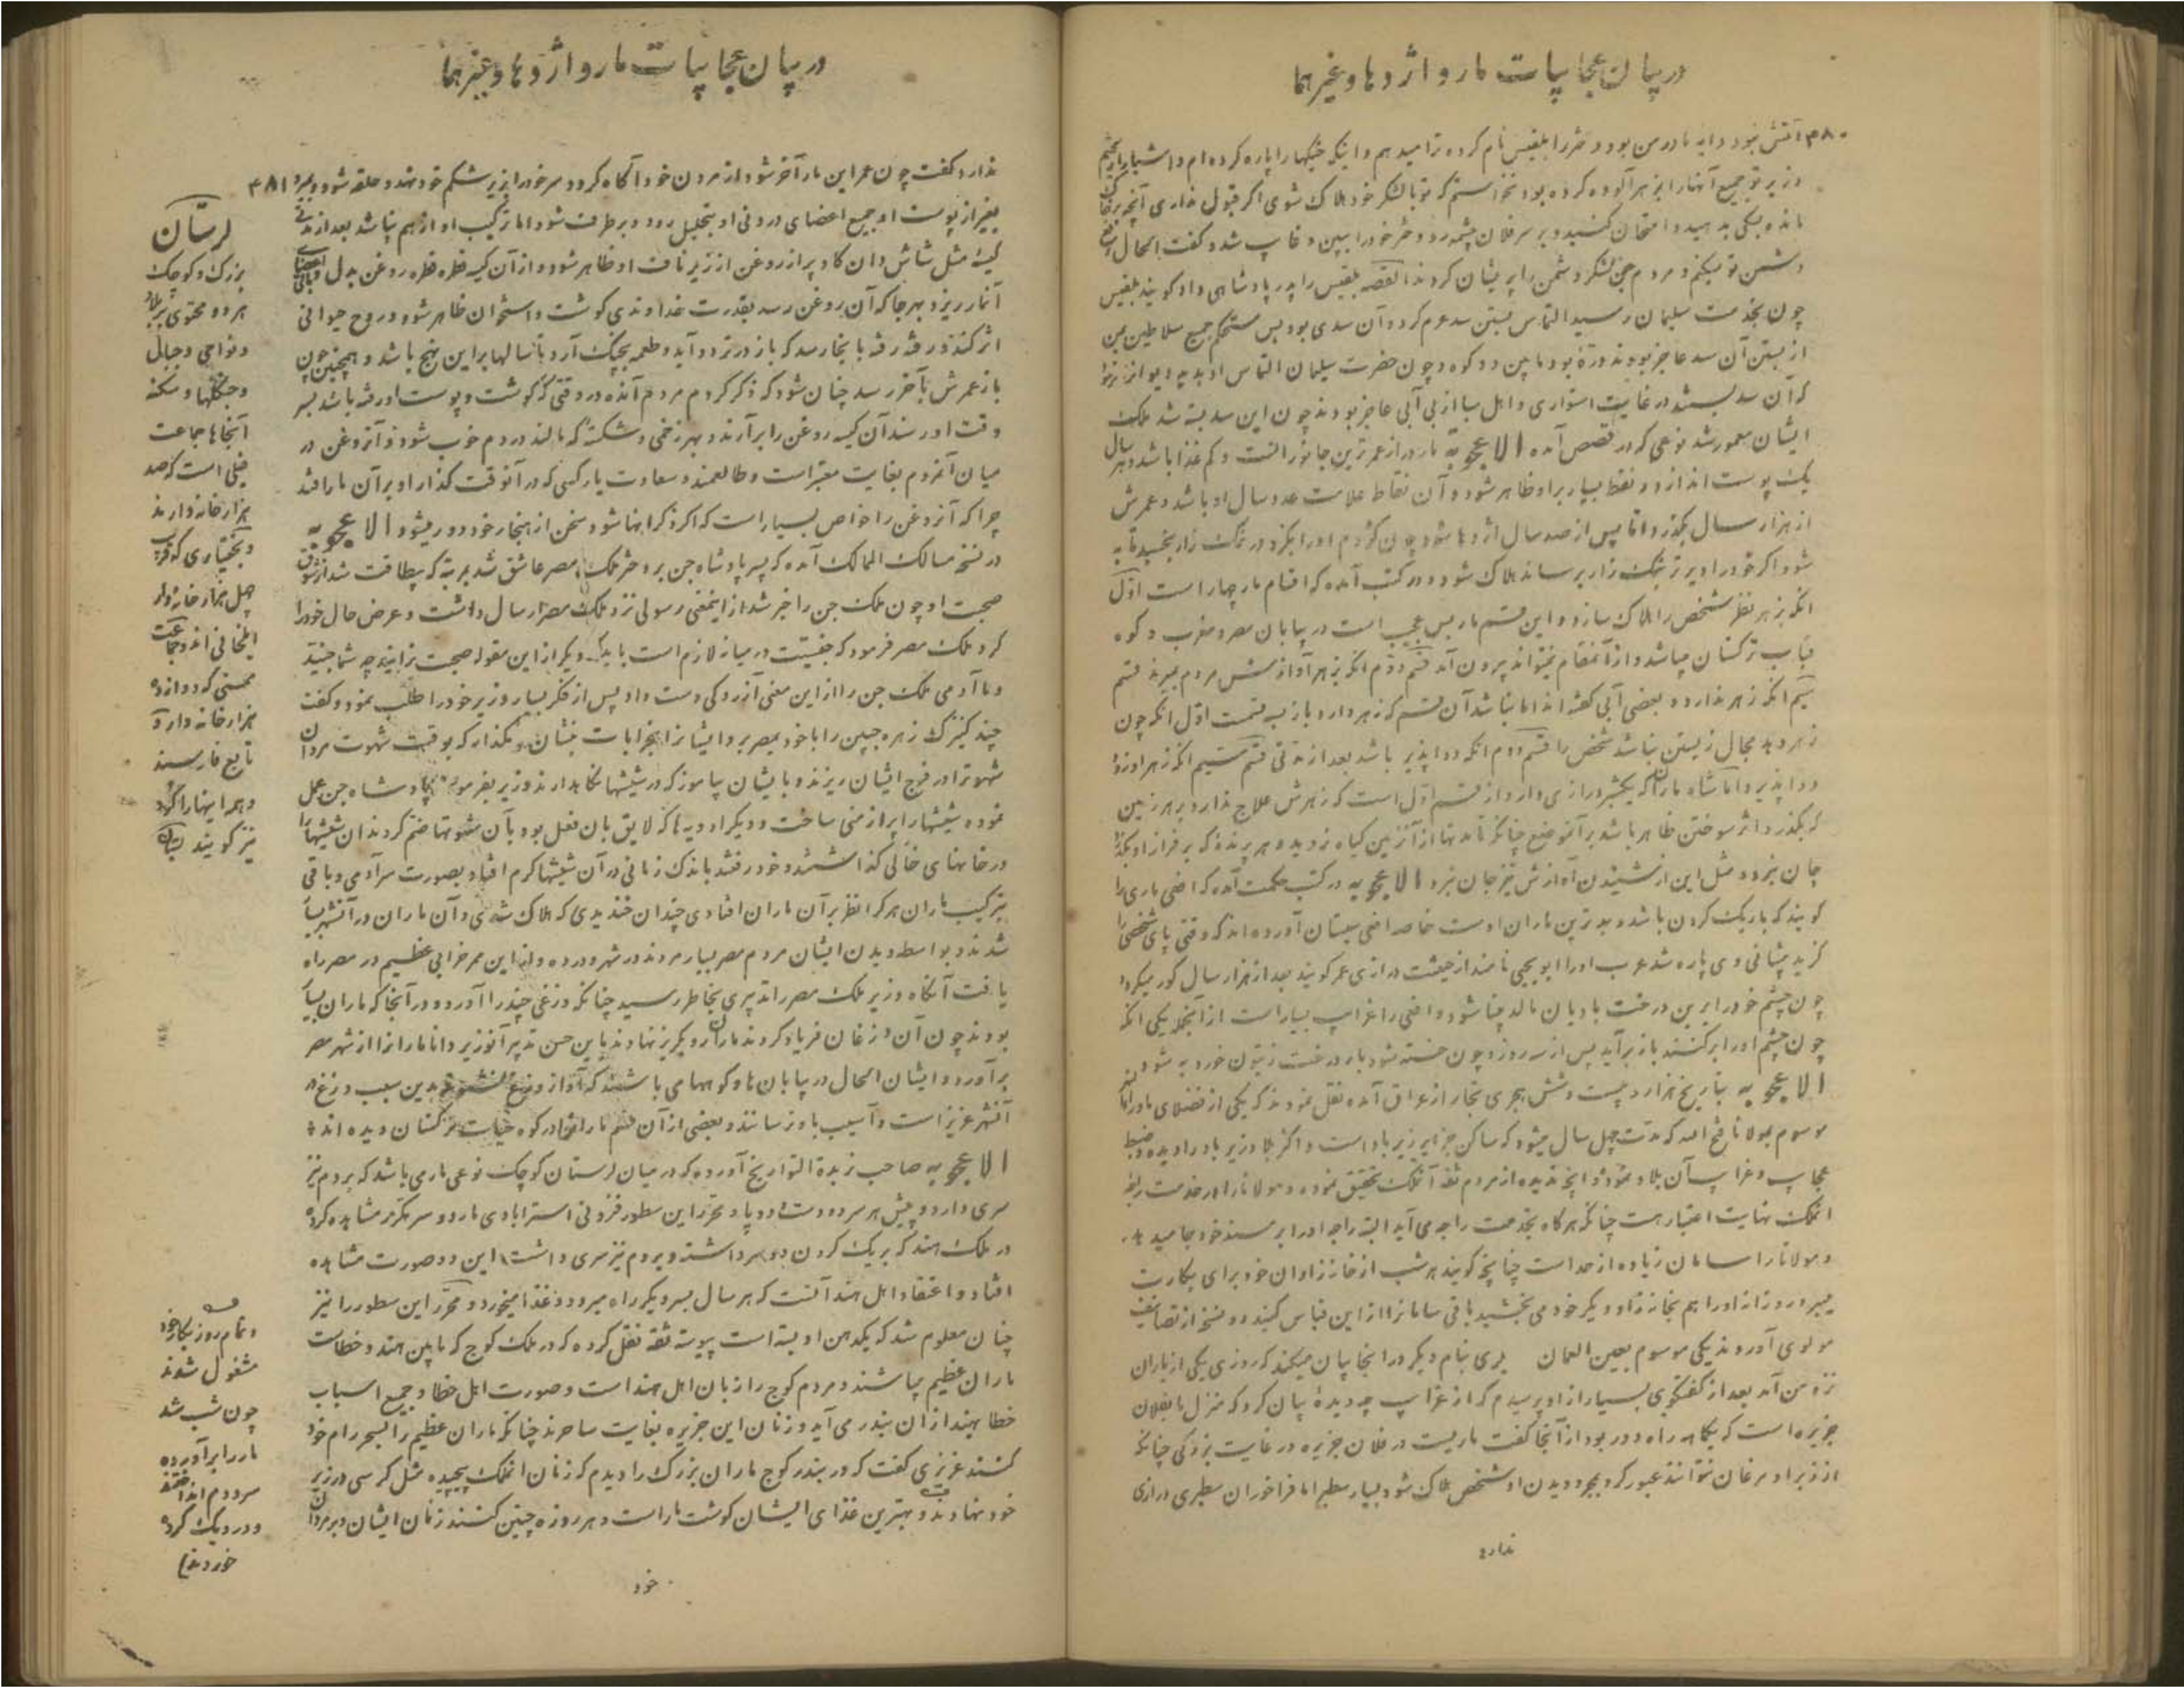 در بیان عجایبات مار و اژدها و غیرهما
۴۸۰ آتش بود و دایه مادر من بود و دختر را بلقیس نام کرده ترا میدهم و اینکه خیکها را پاره کرده‌ام و اشیا را
وزیر تو جمیع آنها را بزهر آلوده کرده بود نخواستم که تو با لشکر خود هلاک شوی اگر قبول نداری آنچه
مانده بسکی بدهید و امتحان کنید و بر سر فلان چشمه رو و دختر خود را ببین و غایب شد و گفت الحال
دشمن تو میکنم و مردم جن لشکر دشمن را پریشان کردند القصه بلقیس را پدر پادشاهی داد گویند بلقیس
چون بخدمت سلیمان رسید التماس بستن سد عرم کرد و آن سدی بود بس مستحکم جمیع سلاطین یمن
از بستن آن سد عاجز بودند و دره بود مابین دو کوه و چون حضرت سلیمان التماس او بدید دیوانرا فرمود
که آن سد بستند در غایت استواری و اهل سبا از بی آبی عاجز بودند چون این سد بسته شد ملک
ایشان معمور شد نوعی که در قصص آمده الاعجوبه مار دراز عمرترین جانورانست و کم غذا باشد و هر سال
یک پوست اندازد و نقط بسیار بر او ظاهر شود و آن نقاط علامت عدد سال او باشد و عمرش
از هزار سال بگذرد اما پس از صد سال اژدها شود چون کژدم او را بگزد در نمک زار بخسپد تا به
شود اگر خود را دیر تر بنمک زار برساند هلاک شود و در کتب آمده که اقسام مار چهار است اول
آنکه بزهر نظر شخص را هلاک سازد و این قسم مار بس عجیب است در بیابان مصر و مغرب و کوه
ترکستان میباشد و از آنمقام نمیتواند بیرون آمد قسم دوم آنکه بزهر آوازش مردم میرند قسم
سیم آنکه زهر ندارد و بعضی آبی گفته‌اند اما نباشد آن قسم که زهر دارد باز بسه قسمت اول آنکه چون
زهر دهد مجال زیستن نباشد شخص را قسم دوم آنکه دوا پذیر باشد بعد از مدتی قسم سیم آنکه زهر او زود
دوا پذیرد اما شاه ماران که یکشبر درازی دارد از قسم اول است که زهرش علاج ندارد بر هر زمین
که بگذرد اثر سوختن ظاهر باشد بر آنموضع چنانکه تا مدتها از آن زمین گیاه نروید و هر پرنده که بر فراز او بگذرد
جان نبرد و مثل این از شنیدن آوازش نیز جان نبرد الاعجوبه در کتب حکمت آمده که افعی ماری را
گویند که باریک گردن باشد و بدترین ماران اوست خاصه افعی سیستان آورده‌اند که وقتی پای شخصی را
گزید پیشانی وی پاره شد عرب او را ابو یحیی نامند از حیثت درازی عمر گویند بعد از هزار سال کور میگردد
چون چشم خود را برین درخت بادیان مالد بینا شود و افعی را غرایب بسیار است از آنجمله یکی آنکه
چون چشم او را بر کنند باز برآید پس از سه روز و چون خسته شود بار درخت زیتون خورد به شود
الاعجوبه بتاریخ هزار و بیست و شش هجری تجار از عراق آمده نقل نمودند که یکی از فضلای ماوراء
موسوم بمولانا فتح الله که مدت چهل سال میشود که ساکن جزایر زیر باد است و اکثر بلاد زیر باد را دیده و ضبط
عجایب و غرایب آن بلاد نموده و آنچه ندیده از مردم ثقه آنملک تحقیق نموده و مولانا را در خدمت راجه
انملک نهایت اعتبار هست چنانکه هرگاه بخدمت راجه می آید البته راجه او را بر مسند خود جا میدهد
و مولانا را سامان زیاده از حد است چنانچه گویند هر شب از خانه زادان خود برای بکارت
میبرد و روز آنرا هم بخانه زاد دیگر خود می بخشید باقی سامانرا ازین قیاس کنید دو نسخه از تصانیف
مولوی آوردند یکی موسوم بعین العمان بنام دیگر در اینجا بیان میکند که روزی یکی از یاران
نزد من آمد بعد از گفتگوی بسیار از او پرسیدم که از غرایب چه دیده بیان کرد که منزل ما بفلان
جزیره است که یکماهه راه دور بود از آنجا گفت ماریست در فلان جزیره در غایت بزرگی چنانکه
از زیر او مرغان نتوانند عبور کرد بمجرد دیدن او شخص هلاک شود بسیار سطبر اما فراخور آن سطبری درازی
ندارد
در بیان عجایبات مار و اژدها و غیرهما
ندارد گفت چون عمر این مار آخر شود از مردن خود آگاه گردد سر خود را بزیر شکم خود نهد و حلقه شود و بمیرد ۴۸۱
بغیر از پوست او جمیع اعضای درونی او بتحلیل رود و برطرف شود اما ترکیب او از هم نپاشد بعد از مدتی
کیسه مثل شاش دان گاو پر از روغن از زیر ناف او ظاهر شود و از آن کیسه قطره قطره روغن بدل
آنمار ریزد بهر جا که آن روغن رسد بقدرت خداوندی گوشت و استخوان ظاهر شود و روح حیوانی
اثر کند و رفته رفته بانجا رسد که باز در تردد آید و طعمه بچنگ آرد و تا سالها براین نهج باشد و همچنین چون
باز عمرش بآخر رسد چنان شود که ذکر کردم مردم آنده در وقتی که گوشت و پوست او رفته باشد بسر
وقت او رسند آن کیسه روغن را برآرند و بهر زخمی و شکستگی که مالند در دم خوب شود و آنروغن در
میان آنمردم بغایت معتبر است و طالعمند و سعادت یار کسی که در آنوقت گذار او بر آن مار افتد
چرا که آنروغن را خواص بسیار است که اگر ذکر انها شود سخن از هنجار خود دور میشود الاعجوبه
در نسخه مسالک الممالک آمده که پسر پادشاه جن بر دختر ملک مصر عاشق شد بمرتبه که بیطاقت شد از شوق
صحبت او چون ملک جن را خبر شد از اینمعنی رسولی نزد ملک مصر ارسال داشت و عرض حال خود را
کرد ملک مصر فرمود که جنسیت در میانه لازم است باید که دیگر از این مقوله صحبت نرانید چه شما جنید
و ما آدمی ملک جن را از این معنی آزردگی دست داد پس از فکر بسیار وزیر خود را طلب نمود و گفت
چند کنیزک زهره جبین را با خود بمصر بر و ایشانرا بخرابات بنشان و بگذار که بوقت شهوت مردان
شهوترا در فرج ایشان ریزند و با ایشان بیاموز که در شیشها نگاهدارند وزیر بفرموده پادشاه جن عمل
نموده شیشها را پر از منی ساخت و دیگر ادویه ها که لایق بان فعل بود بآن شهوتها ضم کردند ان شیشها را
در خانهای خالی گذاشتند و خود رفتند باندک زمانی در آن شیشها کرم افتاد بصورت سر آدمی و باقی
بترکیب ماران هر کرا نظر بر آن ماران افتادی چندان خندیدی که هلاک شدی و آن ماران در آنشهر بسیار
شدند و بواسطه دیدن ایشان مردم مصر بسیار مردند در شهر و رده و از این ممر خرابی عظیم در مصر راه
یافت آنگاه وزیر ملک مصر را تدبیری بخاطر رسید چنانکه وزغی چند را آورد و در آنجا که ماران بسیار
بودند چون آن وزغان فریاد کردند ماران رو بگریز نهادند باین حسن تدبیر آنوزیر دانا مارانرا از شهر مصر
برآورد و ایشان الحال در بیابان ها و کوهها می باشند که آواز وزغ نشنوند بدین سبب وزغ در
آنشهر عزیز است و آسیب باو نرسانند و بعضی از آن قسم مارانرا در کوه ترکستان دیده‌اند
الاعجوبه صاحب زبدة التواریخ آورده که در میان لرستان کوچک نوعی مار می باشد که بر دم نیز
سری دارد و پیش هر سر دو دست و دو پا و محرر این سطور فزونی استرابادی مار دو سر مکرر مشاهده کرده
در ملک هند که بر یک گردن دو سر داشته و بر دم نیز سری داشت این دو صورت مشاهده
افتاد و اعتقاد اهل هند آنست که هر سال بسر دیگر راه میرود و غذا میخورد و محرر این سطور را نیز
چنان معلوم شد که یکدهن او بسته است پیوسته ثقه نقل کرده که در ملک کوچ که مابین هند و خطاست
ماران عظیم میباشند و مردم کوچ را زبان اهل هند است و صورت اهل خطا و جمیع اسباب
خطا بهند از ان بندر می آید و زنان این جزیره بغایت ساحرند چنانکه ماران عظیم را بسحر رام خود
کنند عزیزی گفت که در بندر کوچ ماران بزرگ را دیدم که زنان انملک پیچیده مثل کرسی در زیر
خود نهادند و بهترین غذای ایشان گوشت مار است و هر روزه چنین کنند زنان ایشان و بر مردان
خود
لرستان
بزرگ و کوچک
هر دو محتوی بر بلاد
و نواحی و جبال
و جنگلها و سکنه
آنجاها جماعت
فیلی است که صد
هزار خانه دارند
و بختیاری که قریب
چهل هزار خانه دار
ایلخانی اند و جماعت
ممسنی که دوازده
هزار خانه دار و
تابع فارسند
و همه اینها را لر
نیز گویند
و تمام روز بکار خود
مشغول شدند
چون شب شد
مار را برآورده
سر و دم انداخته
و در دیک کرده
خوردند